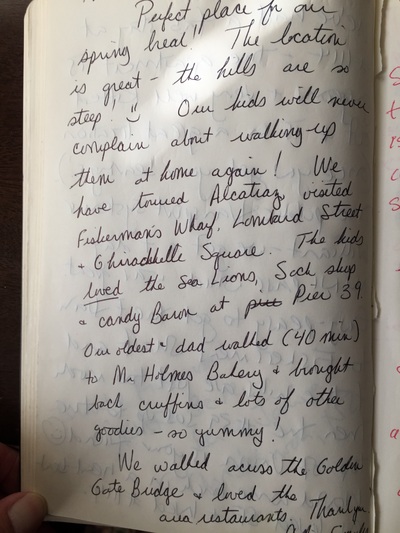 Pefect place for our
spring break! The location
is great - the hills are so
steep! :) Our kids will never
complain about walking up
them at home again! We
have toured Alcatraz, visited
Fisherman's Wharf, Lombard Street
+ Ghiradhelle Square. The kids
loved the Sea Lions, Sock shop
+ candy Baron at pier Pier 39.
Our oldest + dad walked (40 min)
to Mr Holmes Bakery + brought
back cruffins + lots of other
goodies - so yummy!
We walked across the Golden
Gate Bridge + loved the
area restaurants. Thank you